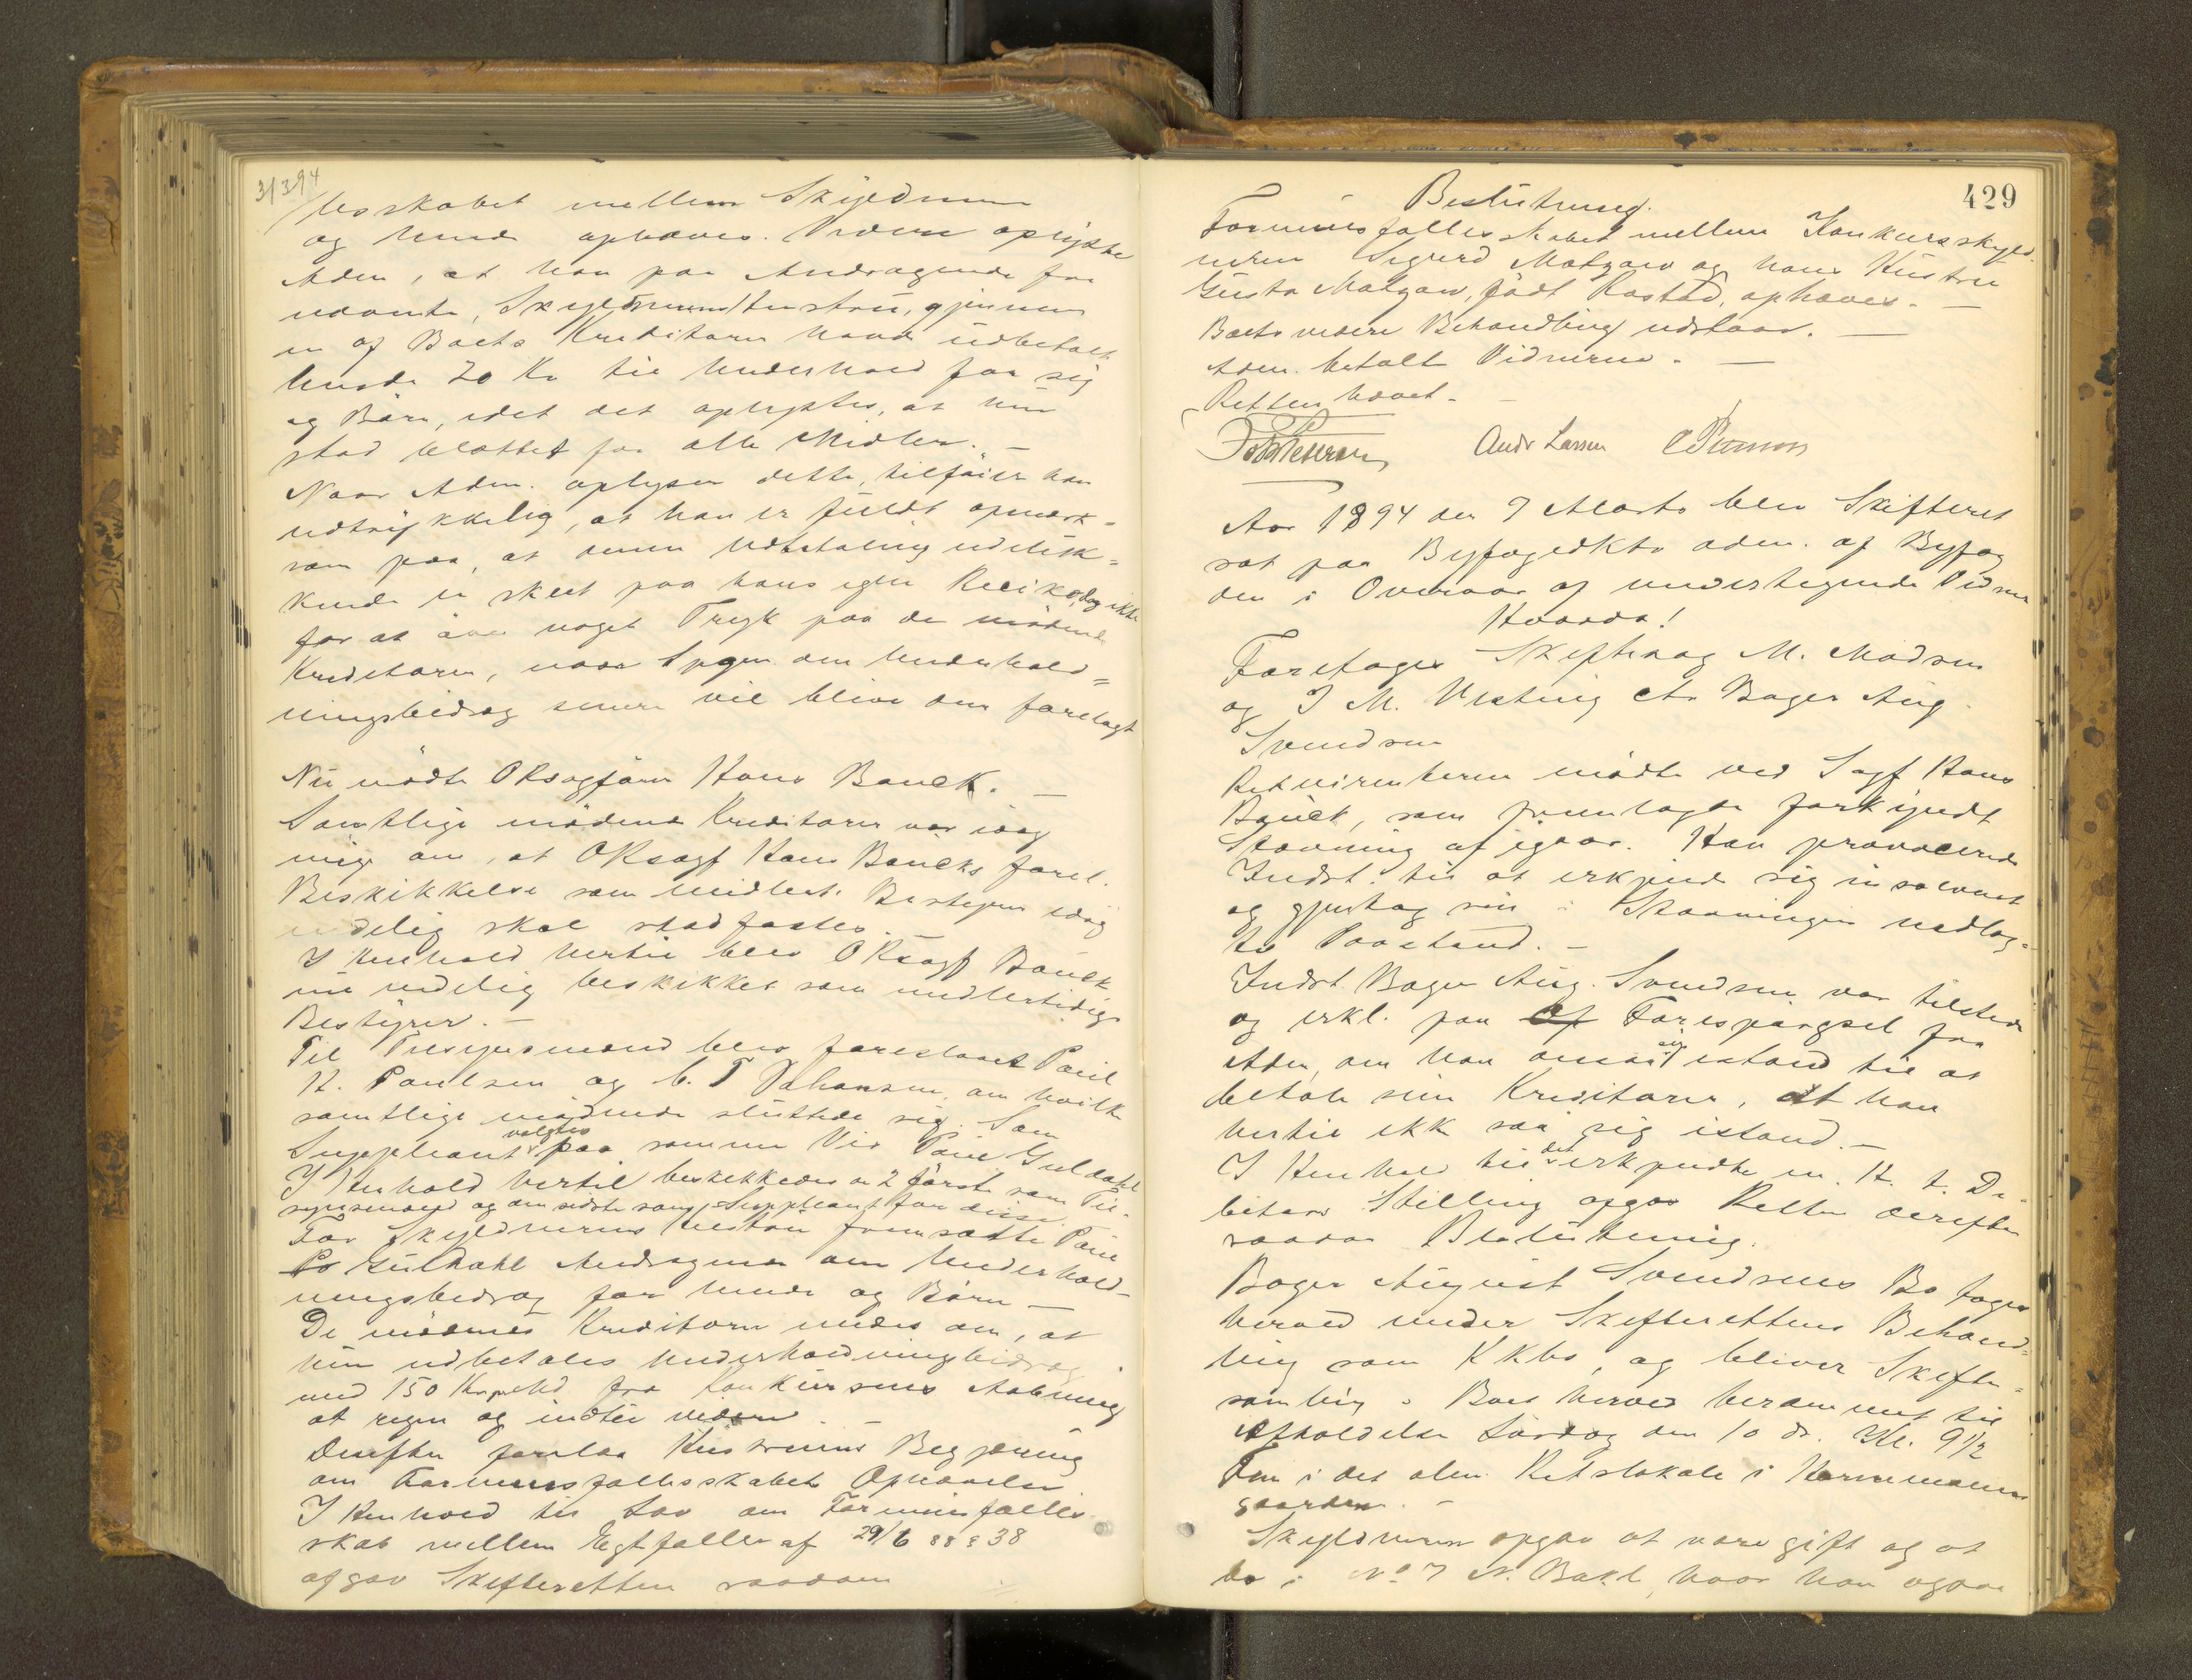 3/3 94
/lesskabet mellem Skyldneren
og hende ophæves. Videre oplyste
Adm, at han paa Andragende fra
nævnte Skyldnerens Hustru, gjennem
en af Boets Kreditorer havde udbetalt
hende 20 Kr til Underhold for sig
og Børn, idet det oplystes, at hun
stod blottet for alle Midler. —
Naar Adm. oplyser dette, tilføier han
udtrykkelig, at han er fuldt opmærk=
som paa, at denne Udbetaling udeluk=
kende er skeet paa hans egen Risiko, og ikke
for at øve noget Tryk paa de mødende
Kreditorer, naar Spgm. om Underhold=
ningsbidrag senere vil blive dem forelagt
Nu mødte ORsagfører Hans Bauck. —
Samtlige mødende Kreditorer var idag
enige om, at ORsagf Hans Baucks forel.
Beskikkelse som midlert. Bestyrer idag
endelig skal stadfæstes. —
I Henhold hertil blev ORsagf Bauck
nu endelig beskikket som midlertidig
Bestyrer. —
Til Tilsynsmænd blev foreslaaet Poul
H. Paulsen og C. T Johansen, om hvilke
samtlige mødende sluttede sig. Som
Suppleant valgtes paa samme Vis Paul Guldahl
I Henhold hertil beskikkedes de 2 første som Til-
synsmænd og den sidste som Suppleant for disse.
For Skyldnerens Hustru fremsatte Paul
Guldahl Andragende om Underhold-
ningsbidrag for hende og Børn —
De mødende Kreditorer enedes om, at
hun udbetales Underholdningsbidrag
med 150 Kr pr Md fra Konkursens Aabning
at regne og indtil videre. —
Derefter forelaa Hustruens Begjæring
om Formuesfællesskabets Ophævelse
I Henhold til Lov om Formuesfælles
skab mellem Ægtefæller af 29/6 88 § 38
afgav Skifteretten saadan
429
Beslutning.
Formuesfællesskabet mellem Konkursskyld-
neren Sigurd Matzow og hans Hustru
Gusta Matzow, født Rostad, ophæves. —
Boets videre Behandling udstaar. —
Adm. betalte Vidnerne. —
Retten hævet. —
Andr Larsen
Aar 1894 den 9 Marts blev Skifteret
sat paa Byfogedkto adm. af Byfog
den i Overvær af undertegnede Vidner
Hvorda!
Foretoges Skiftesag M. Madsen
og J M. Vesting ctr Bager Aug.
Svendsen
Rekvirenterne mødte ved Sagf Hans
Bauck, som fremlagde forkyndt
Stævning af igaar. Han provocerede
Indst. til at erkjende sig insolvent
og gjentog sin i Stævningen nedlag-
te Paastand. —
Indst. Bager Aug. Svendsen var tilstede
og erkl. paa Forespørgsel fra
Adm, om han ansaa sig istand til at
betale sine Kreditorer, at han
hertil ikke saa sig istand. —
I Henhold til det erkjendte m. H. t. De-
bitors Stilling afgav Retten derefter
saadan Beslutning.
Bager August Svendsens Bo tages
herved under Skifterettens Behand-
ling som Kkbo, og bliver Skifte-
samling i Boet herved berammet til
Afholdelse Lørdag den 10 ds. Kl. 9 1/2
Fm i det alm. Retslokale i Hornemans
gaarden. —
Skyldneren opgav at være gift og at
bo i No 7 N. Bakl, hvor han ogsaa